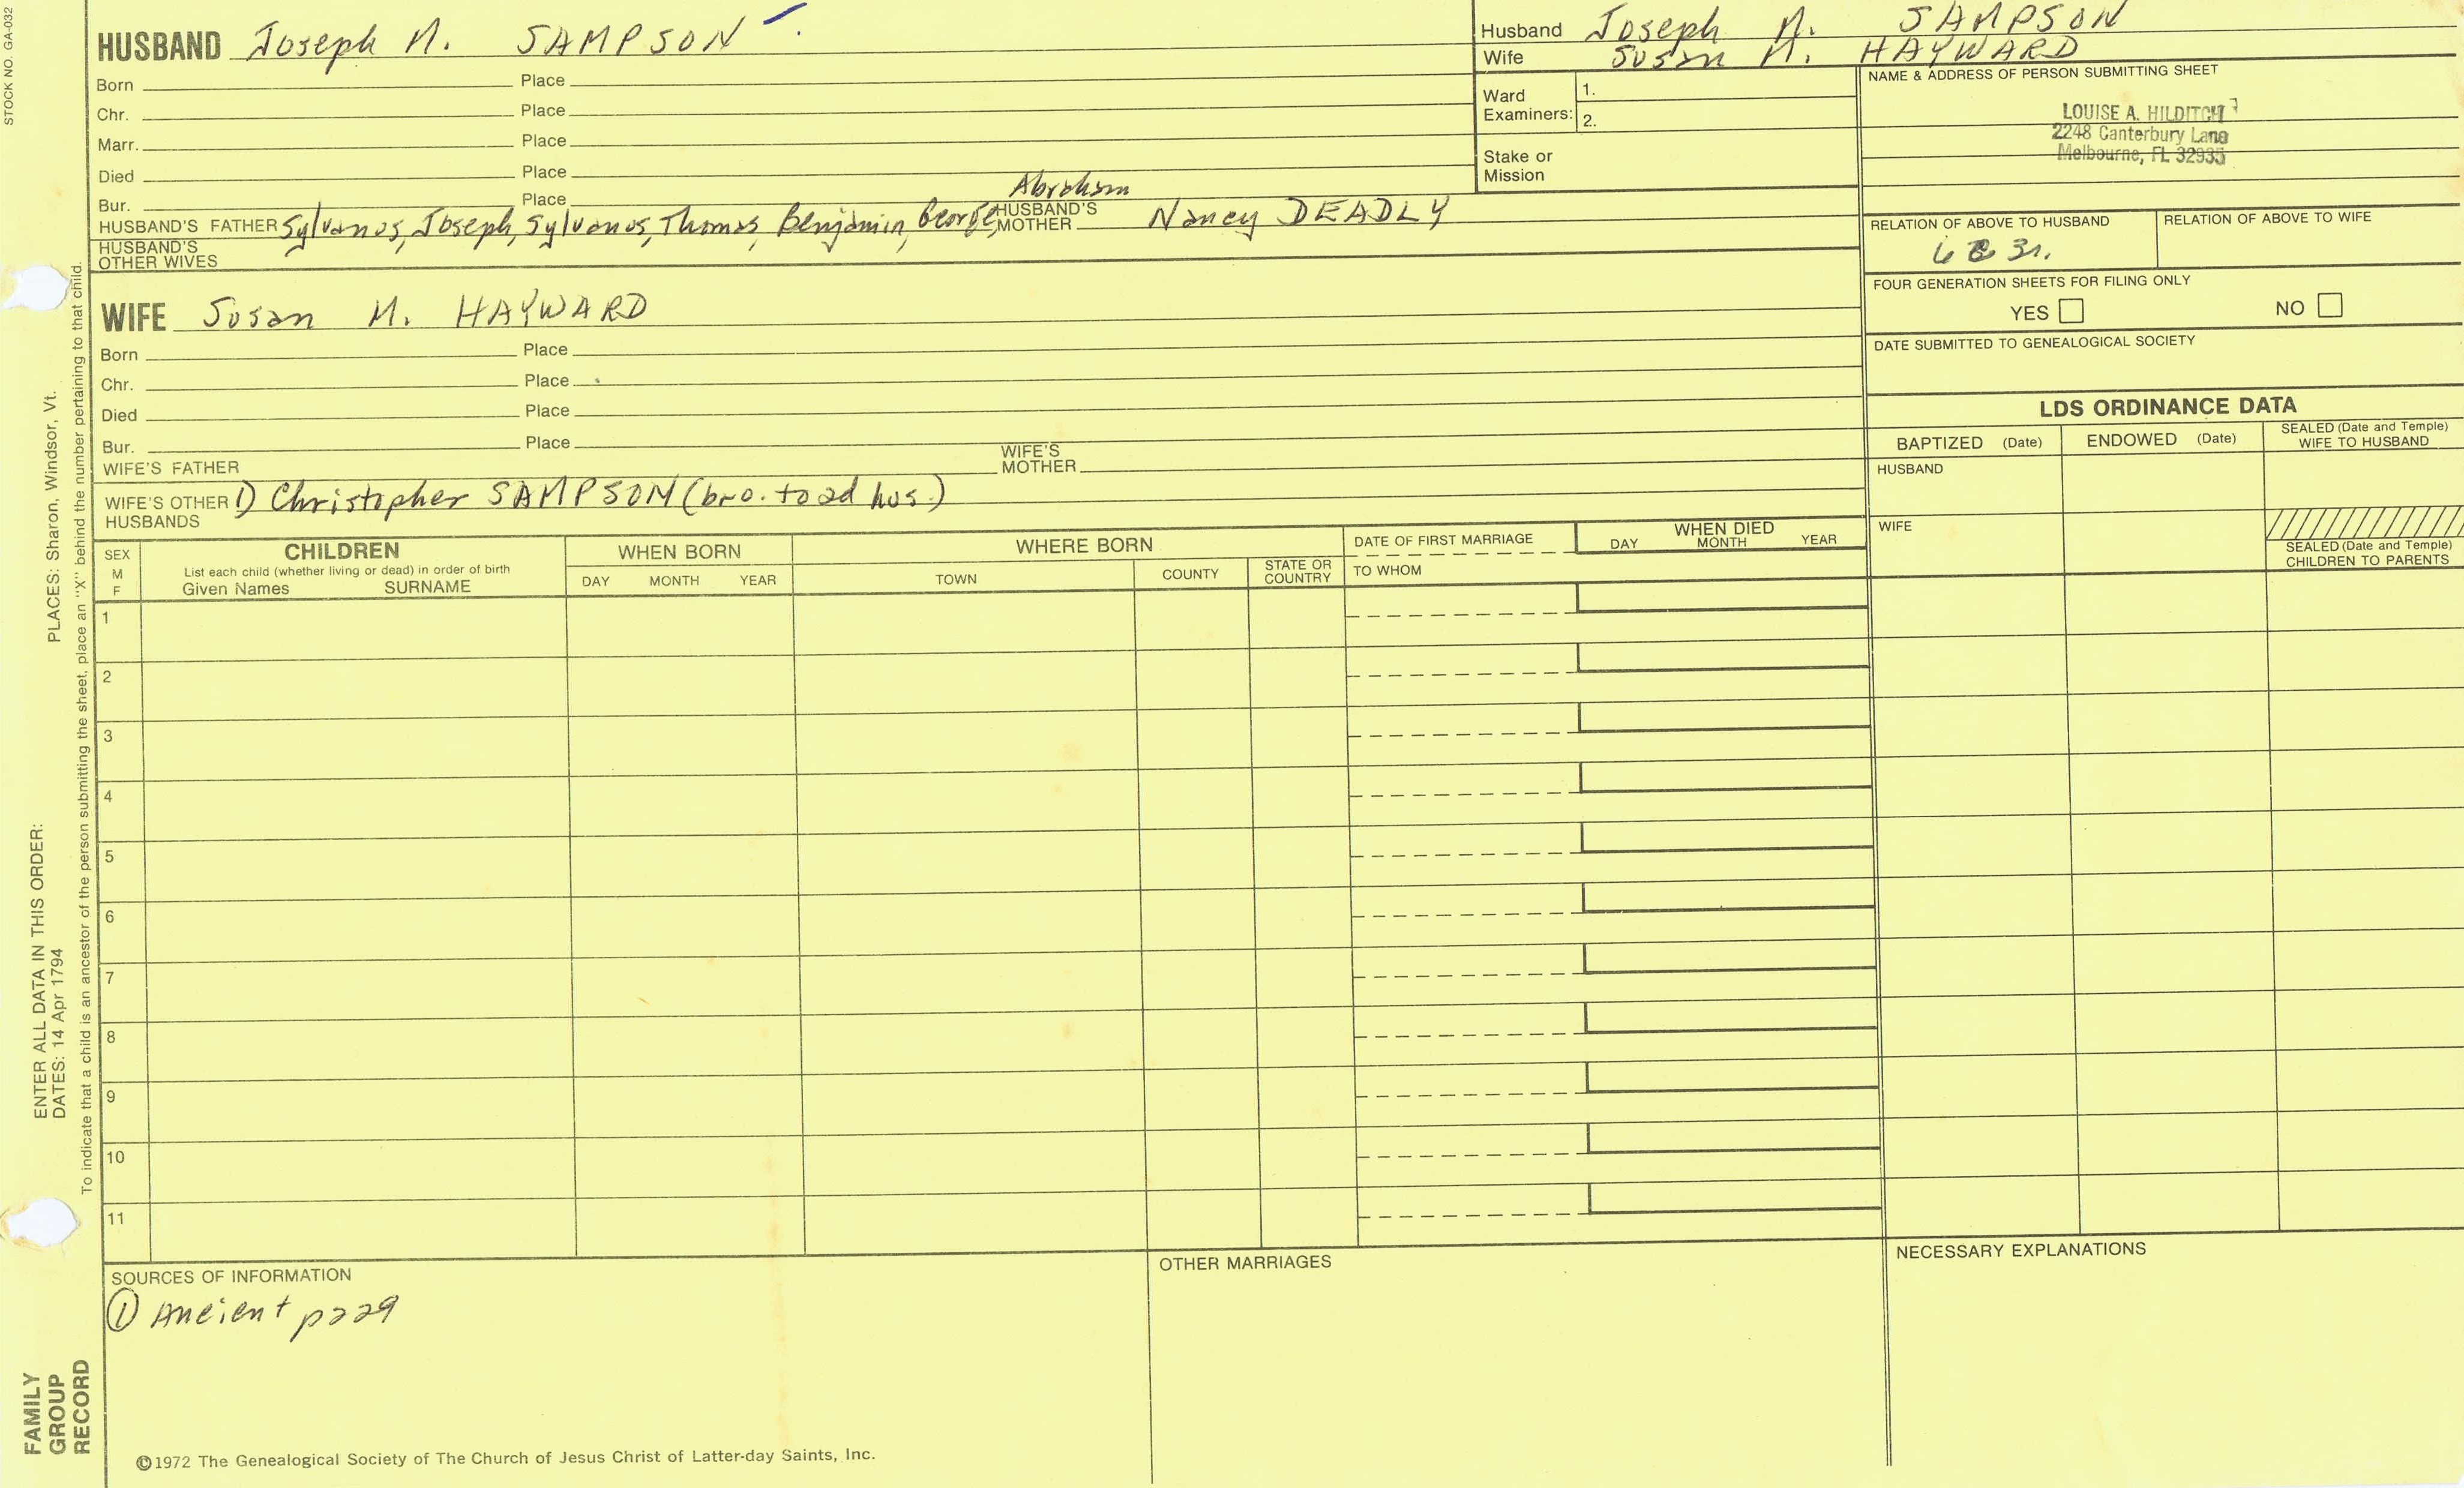 STOCK NO. GA-032
HUSBAND Joseph N. SAMPSON
Born Place
Chr. Place
Marr. Place
Died Place
Bur. Place
Abraham
HUSBAND'S FATHER Sylvanus, Joseph, Sylvanus, Thomas, Benjamin, George, HUSBAND'S MOTHER Nancy DEADLY
HUSBAND'S OTHER WIVES
WIFE Susan M. HAYWARD
Born Place
Chr. Place
Died Place
Bur. Place
WIFE'S FATHER WIFE'S MOTHER
WIFE'S OTHER HUSBANDS 1) Christopher SAMPSON (bro. to 2d hus.)
Husband Joseph N. SAMPSON
Wife Susan M. HAYWARD
Ward Examiners: 1.
2.
Stake or Mission
NAME & ADDRESS OF PERSON SUBMITTING SHEET
LOUISE A. HILDITCH
2248 Canterbury Lane
Melbourne, FL 32935
RELATION OF ABOVE TO HUSBAND RELATION OF ABOVE TO WIFE
FOUR GENERATION SHEETS FOR FILING ONLY
YES NO
DATE SUBMITTED TO GENEALOGICAL SOCIETY
LDS ORDINANCE DATA
BAPTIZED (Date) ENDOWED (Date) SEALED (Date and Temple) WIFE TO HUSBAND
HUSBAND
WIFE
SEALED (Date and Temple) CHILDREN TO PARENTS
SEX M F
CHILDREN
List each child (whether living or dead) in order of birth
Given Names SURNAME
WHEN BORN
DAY MONTH YEAR
WHERE BORN
TOWN COUNTY STATE OR COUNTRY
DATE OF FIRST MARRIAGE
TO WHOM
WHEN DIED
DAY MONTH YEAR
1
2
3
4
5
6
7
8
9
10
11
SOURCES OF INFORMATION
① Ancient p229
OTHER MARRIAGES
NECESSARY EXPLANATIONS
©1972 The Genealogical Society of The Church of Jesus Christ of Latter-day Saints, Inc.
ENTER ALL DATA IN THIS ORDER:
DATES: 14 Apr 1794
PLACES: Sharon, Windsor, Vt.
To indicate that a child is an ancestor of the person submitting the sheet, place an "X" behind the number pertaining to that child.
FAMILY
GROUP
RECORD